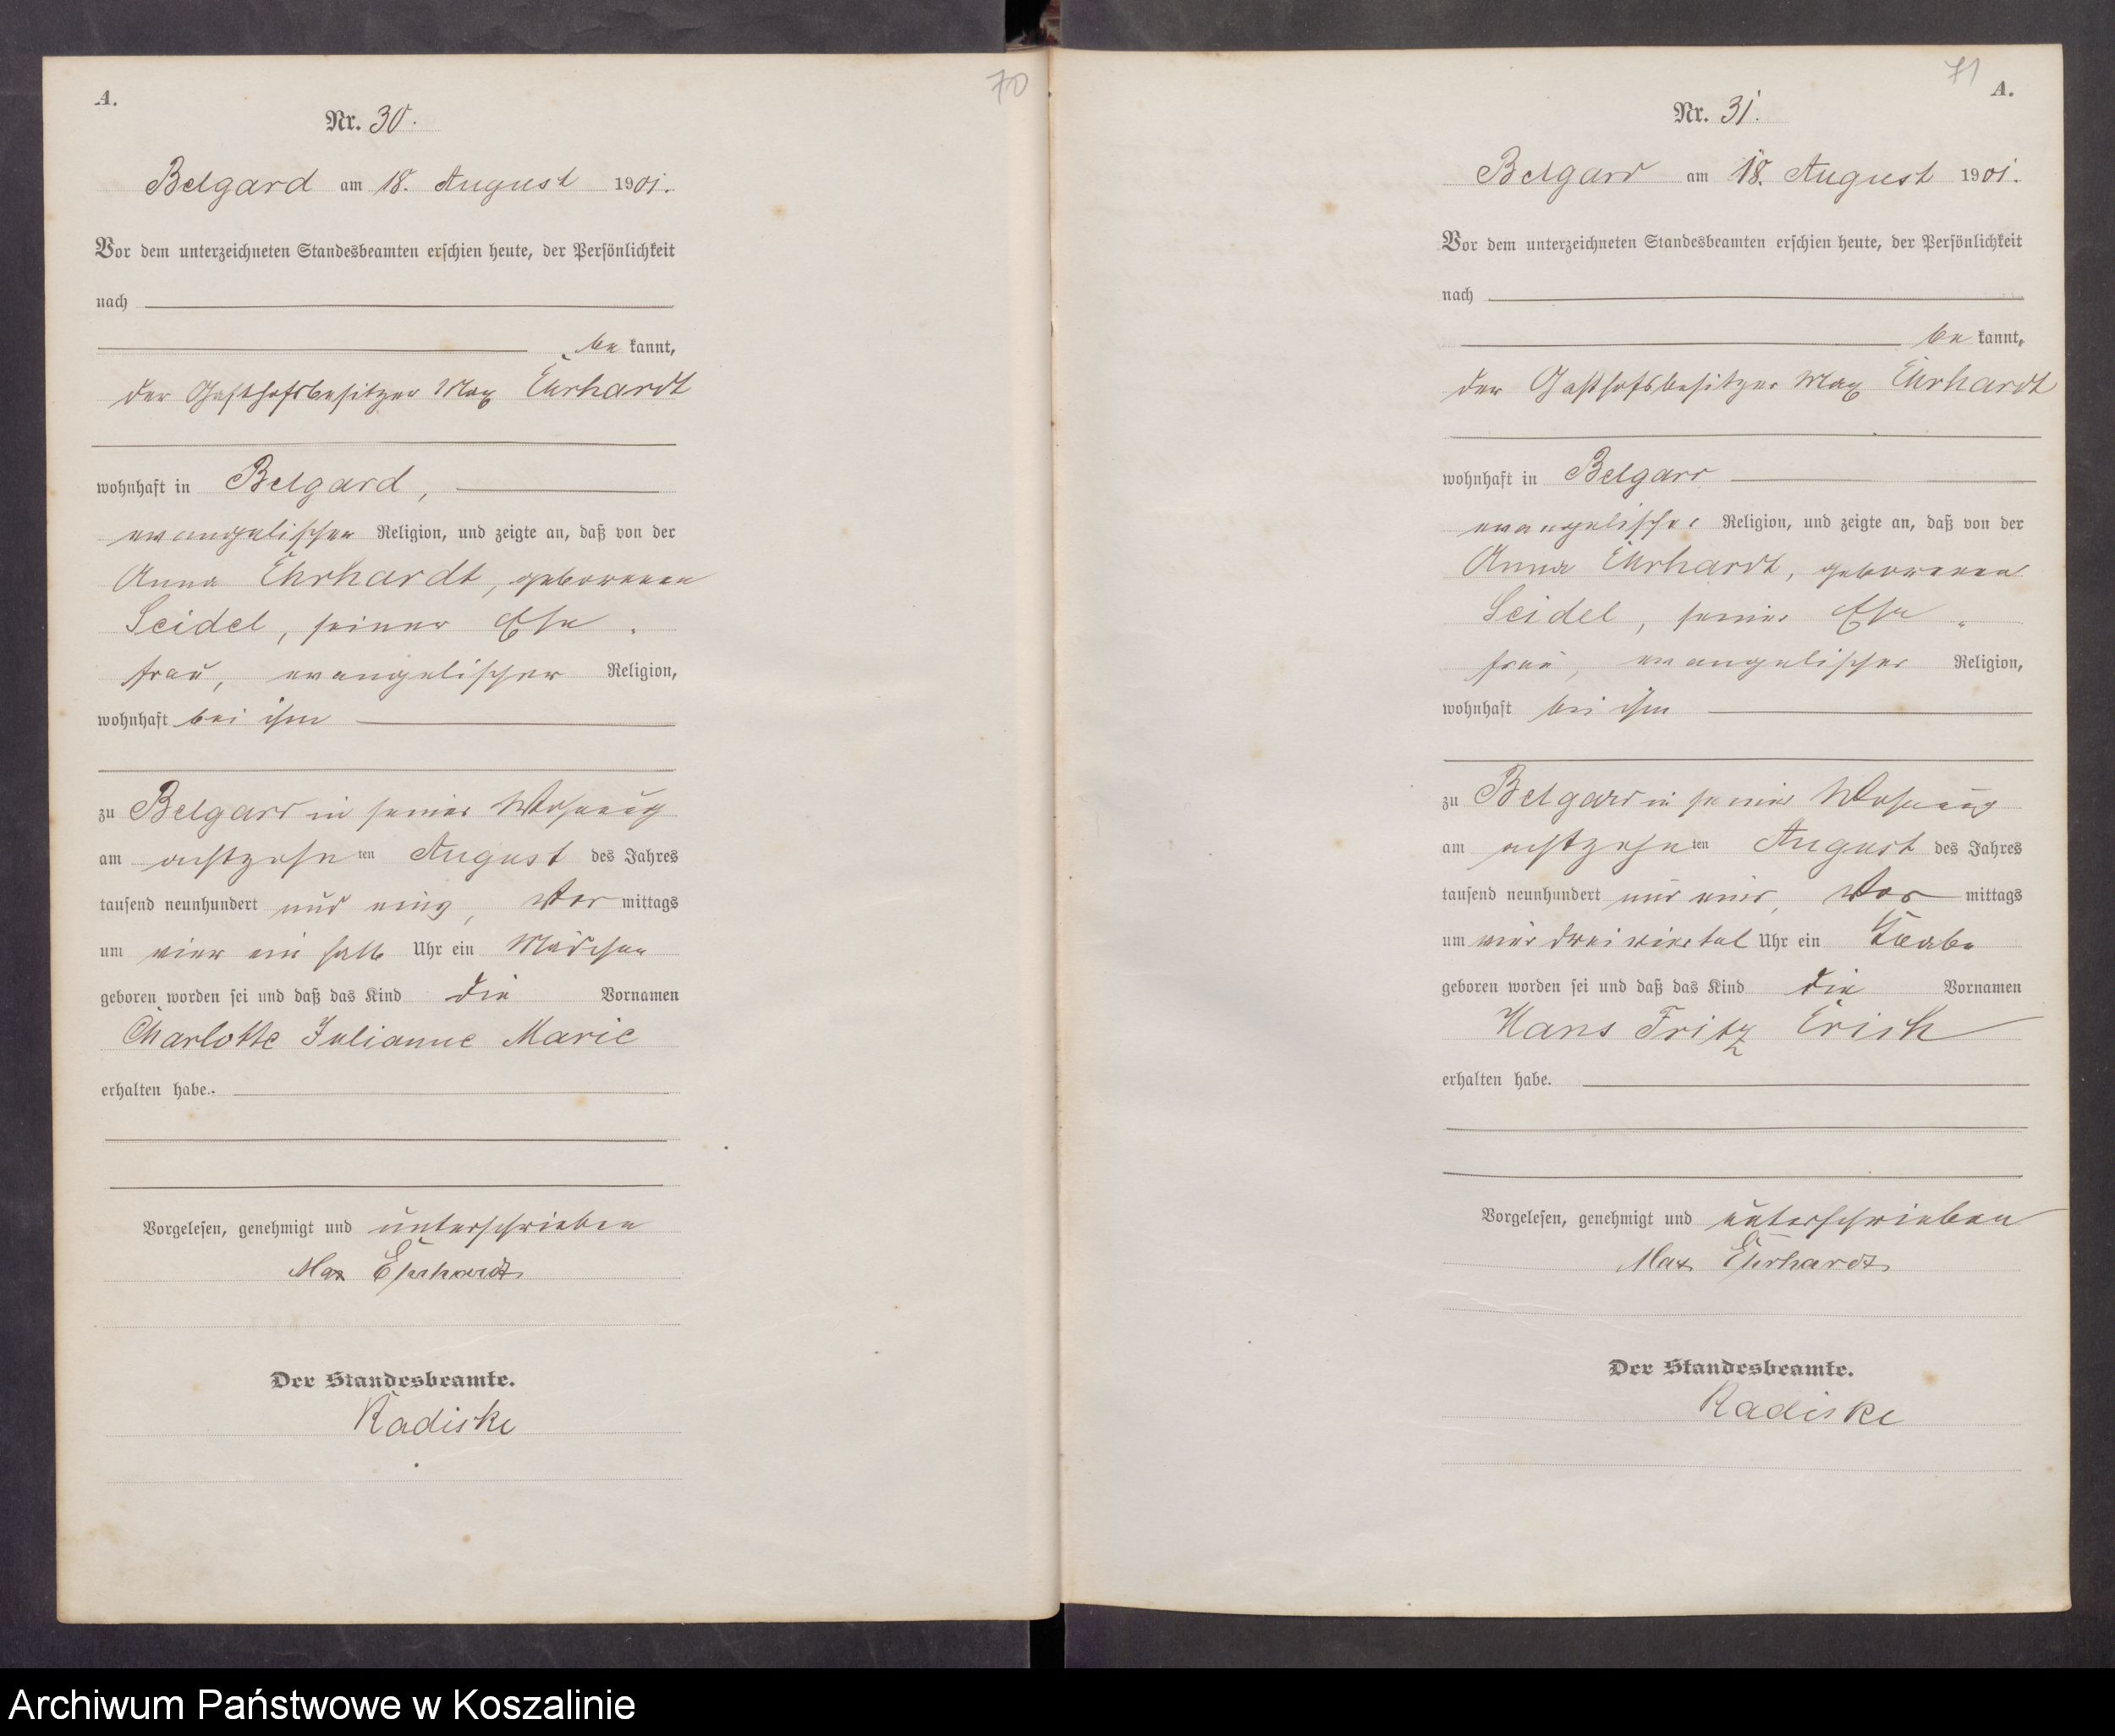 A.
70
Nr. 30.
Belgard am 18. August 1901.
Vor dem unterzeichneten Standesbeamten erschien heute, der Persönlichkeit
nach
be kannt,
der Gasthofsbesitzer Max Ehrhardt
wohnhaft in Belgard,
evangelischer Religion, und zeigte an, daß von der
Anna Ehrhardt, geborenen
Seidel, seiner Ehe
frau, evangelischer Religion,
wohnhaft bei ihm
zu Belgard in seiner Wohnung
am achtzehn ten August des Jahres
tausend neunhundert und eins, Vor mittags
um vier ein halb Uhr ein Mädchen
geboren worden sei und daß das Kind die Vornamen
Charlotte Julianne Marie
erhalten habe.
Vorgelesen, genehmigt und unterschrieben
Max Ehrhardt
Der Standesbeamte.
Radiske
71
A.
Nr. 31.
Belgard am 18. August 1901.
Vor dem unterzeichneten Standesbeamten erschien heute, der Persönlichkeit
nach
be kannt,
der Gasthofsbesitzer Max Ehrhardt
wohnhaft in Belgard
evangelischer Religion, und zeigte an, daß von der
Anna Ehrhardt, geborenen
Seidel, seiner Ehe
frau, evangelischer Religion,
wohnhaft bei ihm
zu Belgard in seiner Wohnung
am achtzehn ten August des Jahres
tausend neunhundert und eins, Vor mittags
um vier dreiviertel Uhr ein Knabe
geboren worden sei und daß das Kind die Vornamen
Hans Fritz Erich
erhalten habe.
Vorgelesen, genehmigt und unterschrieben
Max Ehrhardt
Der Standesbeamte.
Radiske
Archiwum Państwowe w Koszalinie